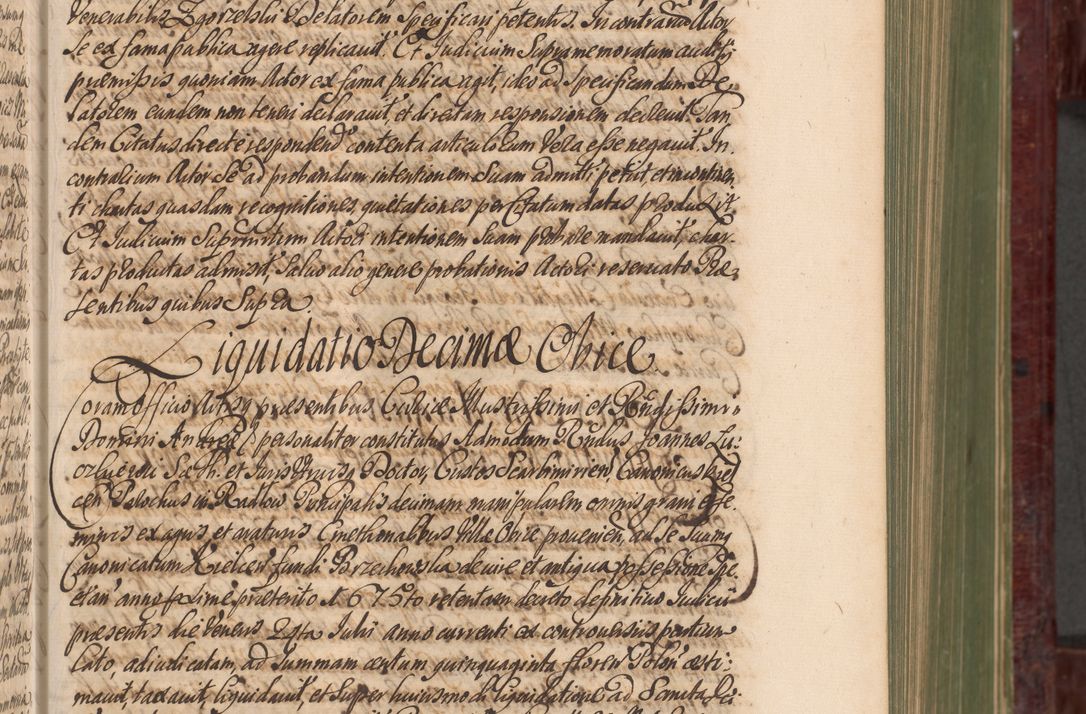 Venerabilis Zgorzelski Delatorem Specificari petentis. In contrarium Actor
se ex fama publica agere replicavit. Et Judicium Supramemoratum auditis
præmissis quoniam Actor ex fama publica agit, ideo ad Specificandum De-
latorem eundem non teneri declaravit, et directam responsionem decrevit. Tan
dem Citatus directe respondend contenta articulorum Vera esse negavit. In
contrarium Actor Se ad probandum intentionem Suam admitti petiit et
ti chartas quasdam recognitiones quietationes per Citatum datas produxit
Et Judicium Suprascriptum Actori intentionem Suam probare mandavit, char-
tas productas admisit, Salvo alio genere probationis Actori reservato Præ-
sentibus quibus Supra.
Liquidatio Decimæ Obice
Coram Officio Actisq præsentibus Curiæ Illustrissimi et Rndissimi
Domini Andreæ personaliter constitutus Admodum Rndus Joannes
S. Th. et Juris Utriusq Doctor, Custos Scarbimirien, Canonicus Kiel
cen Parochus in Radłow Principalis decimam manipularem omnis grani esse
minis ex agris, et araturis Cmethonalibus Villæ Obice provenien, ad Se Suumq
Canonicatum Kielcen fundi Brzechowska de iure et antiqua possessione Spe
ctan anno proxime præterito 1675to retentam decreto definitivo Judicii
præsentis die Veneris 24ta Julii anno currenti ex controversiis partium
lato, adiudicatam, ad Summam centum quinquaginta floren Polon æsti-
mavit, taxavit, liquidavit, et Super huiusmodi liquidatione ad Sancta Dei